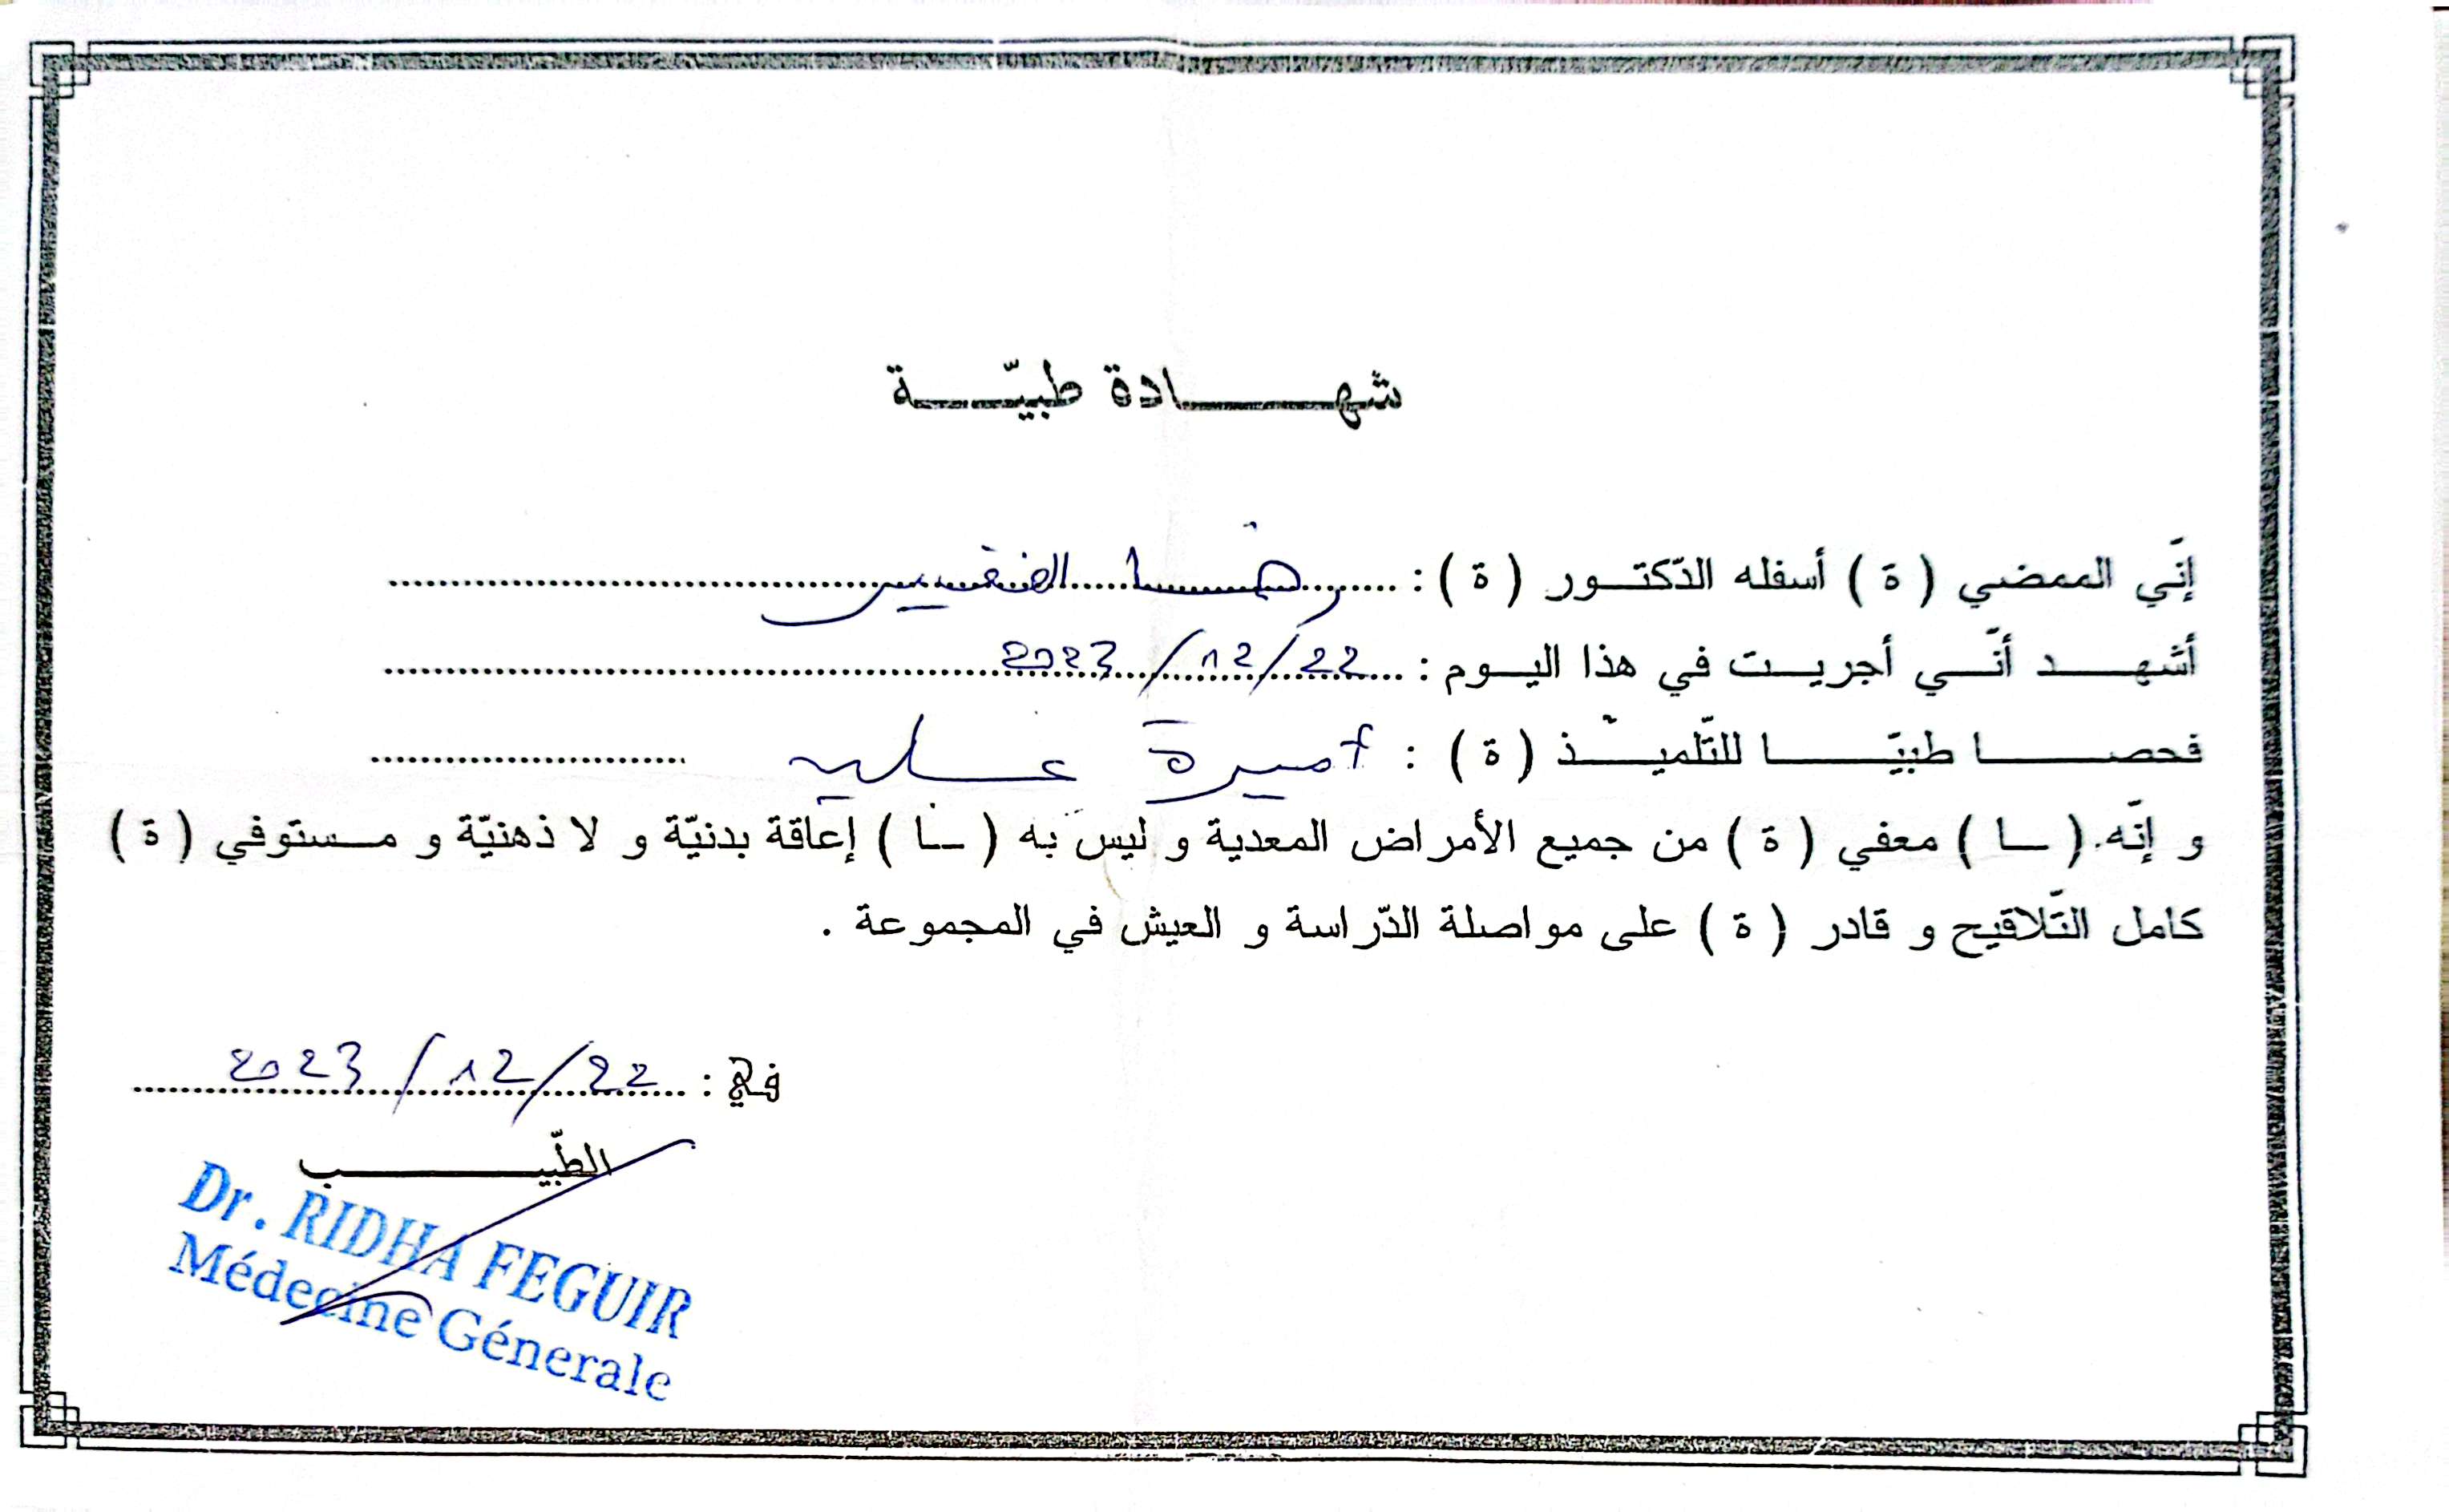 شهادة طبيّة
إنّي الممضي ( ة ) أسفله الدّكتور ( ة ) : رضا الفقير
أشهد أنّي أجريت في هذا اليوم : 22/12/2023
فحصا طبيّا للتّلميذ ( ة ) : أميرة
و إنّه ( ـا ) معفي ( ة ) من جميع الأمراض المعدية و ليس به ( ـا ) إعاقة بدنيّة و لا ذهنيّة و مستوفي ( ة )
كامل التّلاقيح و قادر ( ة ) على مواصلة الدّراسة و العيش في المجموعة .
في : 22/12/2023
الطّبيب
Dr. RIDHA FEGUIR
Médecine Génerale